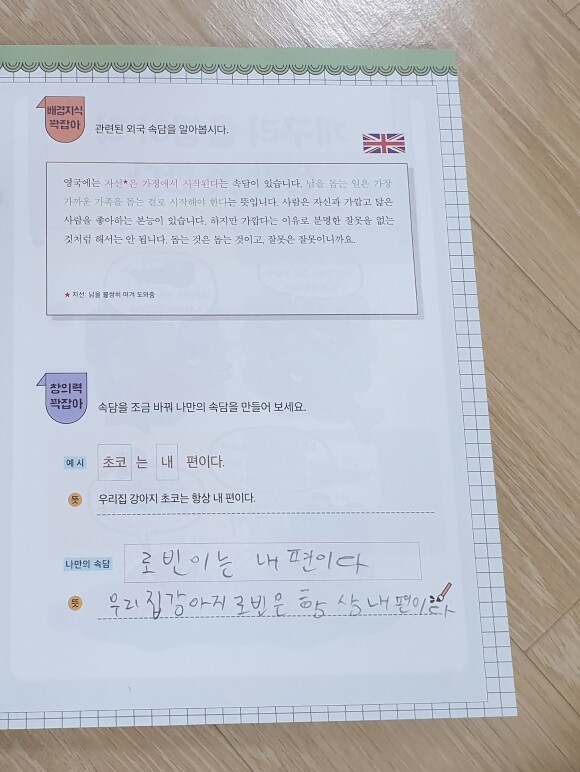 배경지식
꽉잡아
관련된 외국 속담을 알아봅시다.
영국에는 자선★은 가정에서 시작된다는 속담이 있습니다. 남을 돕는 일은 가장
가까운 가족을 돕는 걸로 시작해야 한다는 뜻입니다. 사람은 자신과 가깝고 닮은
사람을 좋아하는 본능이 있습니다. 하지만 가깝다는 이유로 분명한 잘못을 없는
것처럼 해서는 안 됩니다. 돕는 것은 돕는 것이고, 잘못은 잘못이니까요.
★ 자선: 남을 불쌍히 여겨 도와줌
창의력
꽉잡아
속담을 조금 바꿔 나만의 속담을 만들어 보세요.
예시 초코 는 내 편이다.
뜻 우리집 강아지 초코는 항상 내 편이다.
나만의 속담 로빈이는 내 편이다
뜻 우리 집 강아지 로빈은 항상 내 편이다